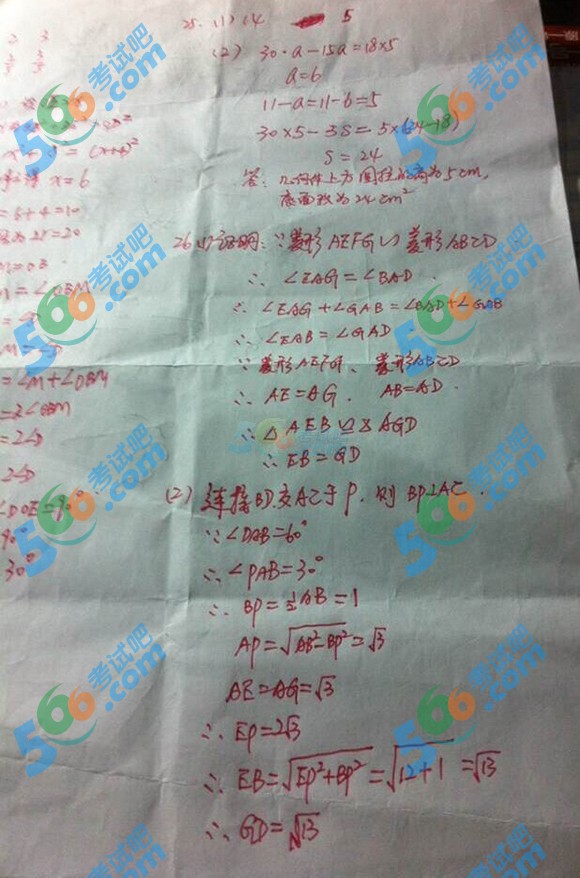 25. (1) 14 5
(2) 30·a-15a=18×5
a=6
11-a=11-6=5
30×5-3S=5×(24-18)
S=24
答: 几何体上方圆柱的高为5cm,
底面积为24cm²
26.(1)证明:∵菱形AEFG∽菱形ABCD
∴ ∠EAG=∠BAD.
∴ ∠EAG+∠GAB=∠BAD+∠GAB
∴ ∠EAB=∠GAD
∵菱形AEFG、菱形ABCD
∴ AE=AG. AB=AD.
∴ △AEB≌△AGD
∴ EB=GD
(2) 连接BD交AC于P, 则BP⊥AC.
∵∠DAB=60°
∴ ∠PAB=30°
∴ BP=½AB=1
AP=√AB²-BP²=√3
AE=AG=√3
∴ EP=2√3
∴ EB=√EP²+BP²=√12+1=√13
∴ GD=√13
=(x+4)²
x=6
=6+4=10
2r=20
=∠OBM
=∠M+∠OBM
=2∠OBM
=2∠D
2∠D
∠DOE=90°
90°
30°
566考试吧
.com